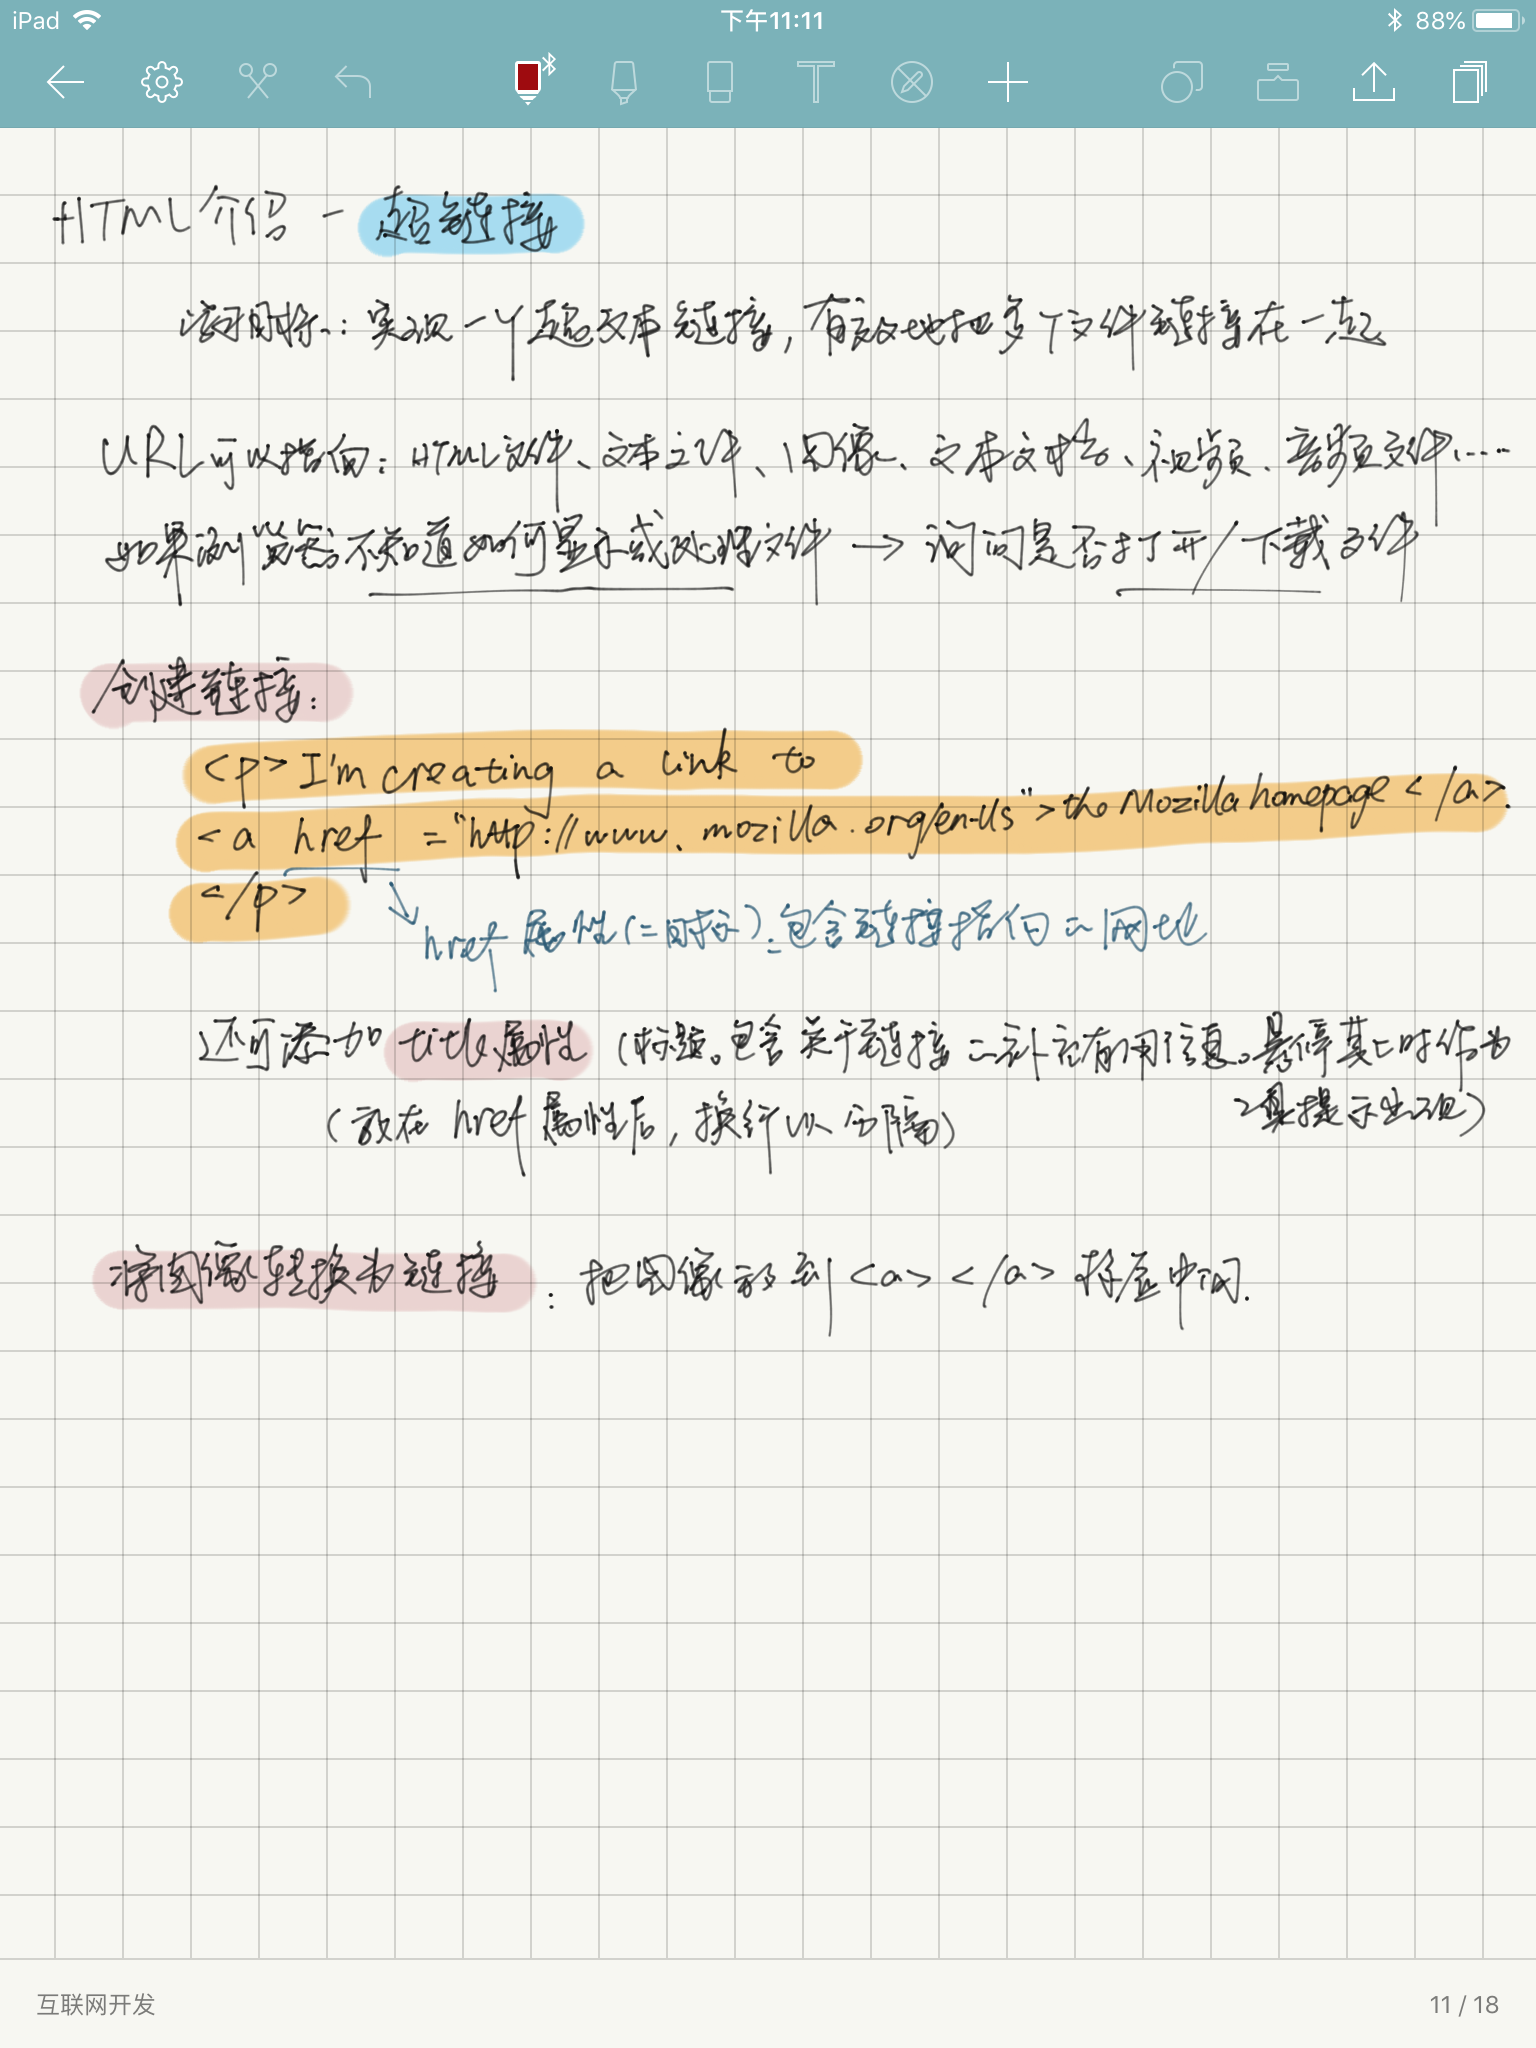 iPad 下午11:11 88%
HTML介绍 - 超链接
学习目标：实现一个超文本链接，有效地把多个文件链接在一起
URL可以指向：HTML文件、文本文件、图像、文本文档、视频、音频文件……
如果浏览器不知道如何显示或处理文件 → 询问是否打开/下载文件
创建链接：
<p>I'm creating a link to
<a href ="http://www.mozilla.org/en-US">the Mozilla homepage</a>.
</p>
href 属性(=目标)：包含链接指向の网址
还可添加 title属性 (标题。包含关于链接の补充有用信息。悬停其上时作为
工具提示出现)
(放在 href 属性后，换行以分隔)
将图像转换为链接：把图像放到<a></a>标签中间.
互联网开发 11 / 18